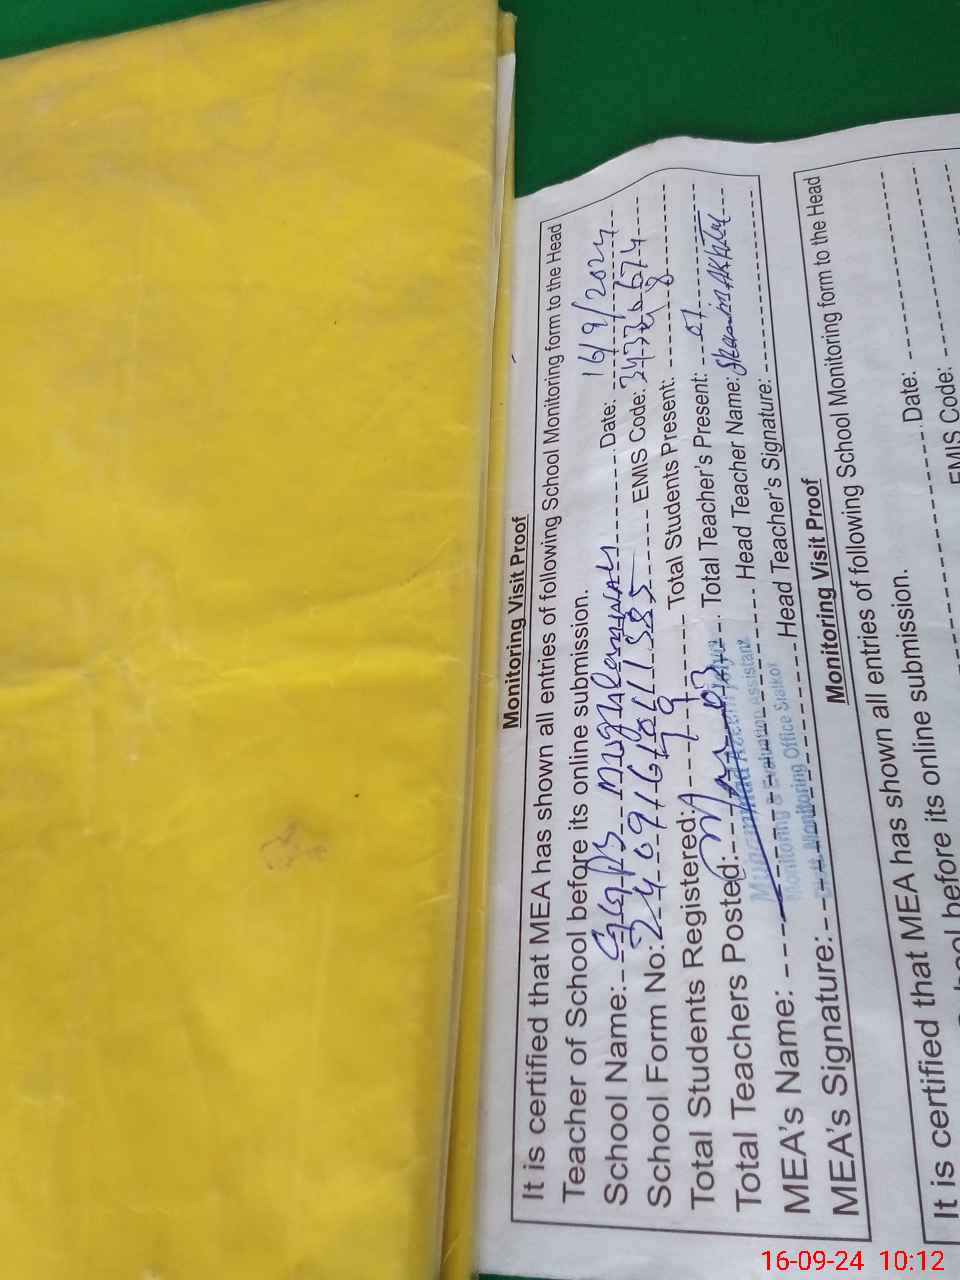 Monitoring Visit Proof
It is certified that MEA has shown all entries of following School Monitoring form to the Head
Teacher of School before its online submission.
School Name: GGPS Date: 16/9/2024
School Form No: EMIS Code:
Total Students Registered: 79 Total Students Present:
Total Teachers Posted: 03 Total Teacher's Present: 01
MEA's Name: Head Teacher Name: Akhtar
MEA's Signature: Head Teacher's Signature:
Monitoring & Evaluation Assistant
Monitoring Office Sialkot
Monitoring Visit Proof
It is certified that MEA has shown all entries of following School Monitoring form to the Head
before its online submission.
Date:
EMIS Code:
16-09-24 10:12